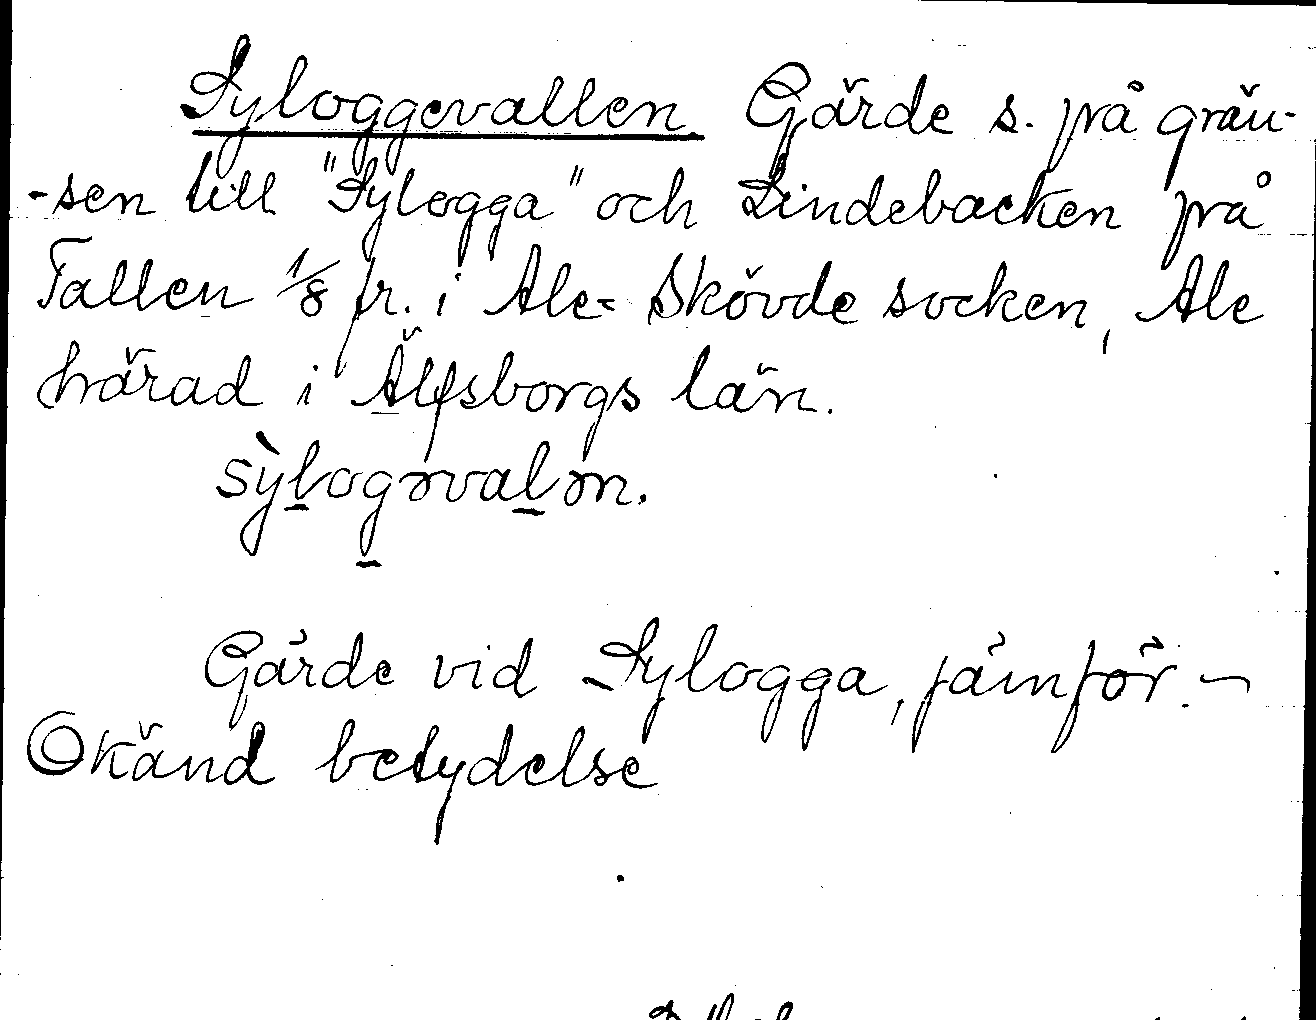 Syloggevallen. Gärde s. på grän-
-sen till "Sylogga" och Lindebacken på
Tallen 1/8 fr. i Ale-Skövde socken, Ale
härad i Älfsborgs län.
sỳlogəvalən.
Gärde vid Sylogga, jämför. –
Okänd betydelse